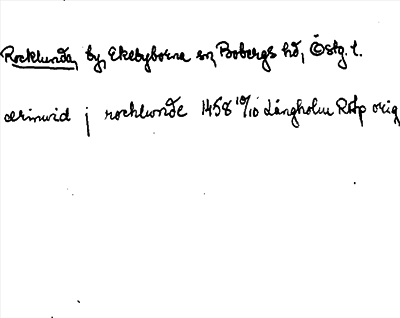 Rocklunda, by, Ekebyborna sn, Bobergs hd, Östg. l.
ærinwid j rocklunde 1458 10/10 Långholm RAp orig